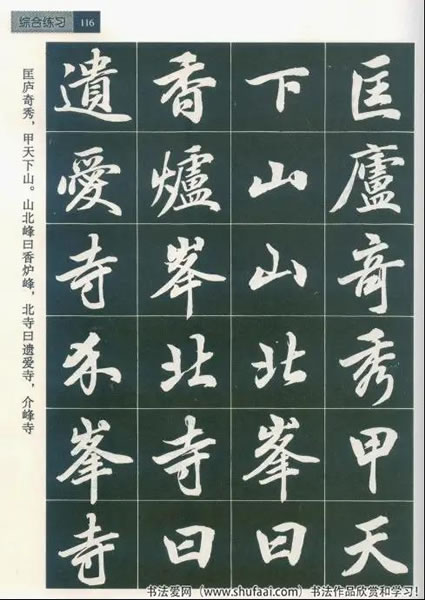 综合练习 116
匡廬竒秀甲天
下山山北峯曰
香爐峯北寺曰
遺愛寺介峯寺
匡庐奇秀，甲天下山。山北峰曰香炉峰，北寺曰遗爱寺，介峰寺
书法爱网（www.shufaai.com）书法作品欣赏和学习！